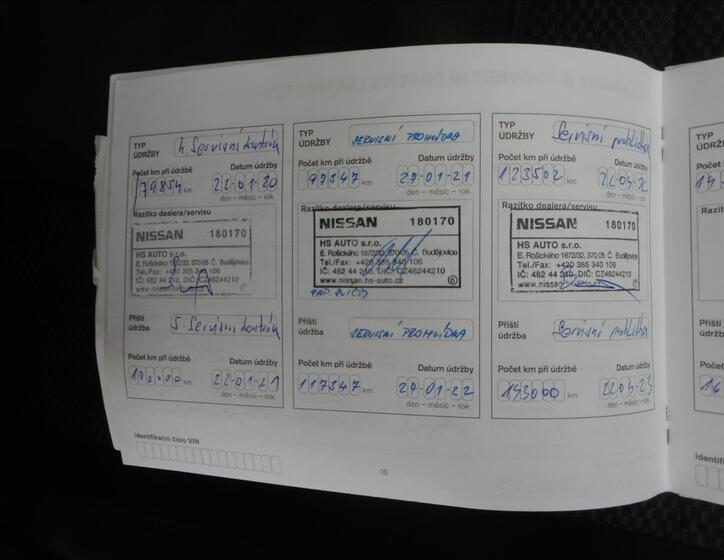 TYP ÚDRŽBY
4. Servisní kontrola
Počet km při údržbě
Datum údržby
79854 km
22-01-20
den – měsíc – rok
Razítko dealera/servisu
NISSAN 180170
HS AUTO s.r.o.
E. Rošického 1872/32, 370 05 Č. Budějovice
Tel./Fax: +420 385 340 106
IČ: 482 44 210, DIČ: CZ48244210
Příští údržba
5. Servisní kontrola
Počet km při údržbě
Datum údržby
100000 km
22-01-21
den – měsíc – rok
Identifikační číslo VIN
TYP ÚDRŽBY
SERVISNÍ PROHLÍDKA
Počet km při údržbě
Datum údržby
97347 km
27-01-21
den – měsíc – rok
Razítko dealera/servisu
NISSAN 180170
HS AUTO s.r.o.
E. Rošického 1872/32, 370 05 Č. Budějovice
Tel./Fax: +420 385 340 106
IČ: 482 44 210, DIČ: CZ48244210
www.nissan.hs-auto.cz
6
Příští údržba
SERVISNÍ PROHLÍDKA
Počet km při údržbě
Datum údržby
117347 km
27-01-22
den – měsíc – rok
16
TYP ÚDRŽBY
Servisní prohlídka
Počet km při údržbě
Datum údržby
123502 km
22-04-22
den – měsíc – rok
Razítko dealera/servisu
NISSAN 180170
HS AUTO s.r.o.
E. Rošického 1872/32, 370 05 Č. Budějovice
Tel./Fax: +420 385 340 106
IČ: 482 44 210, DIČ: CZ48244210
Příští údržba
Servisní prohlídka
Počet km při údržbě
Datum údržby
143000 km
22-04-23
den – měsíc – rok